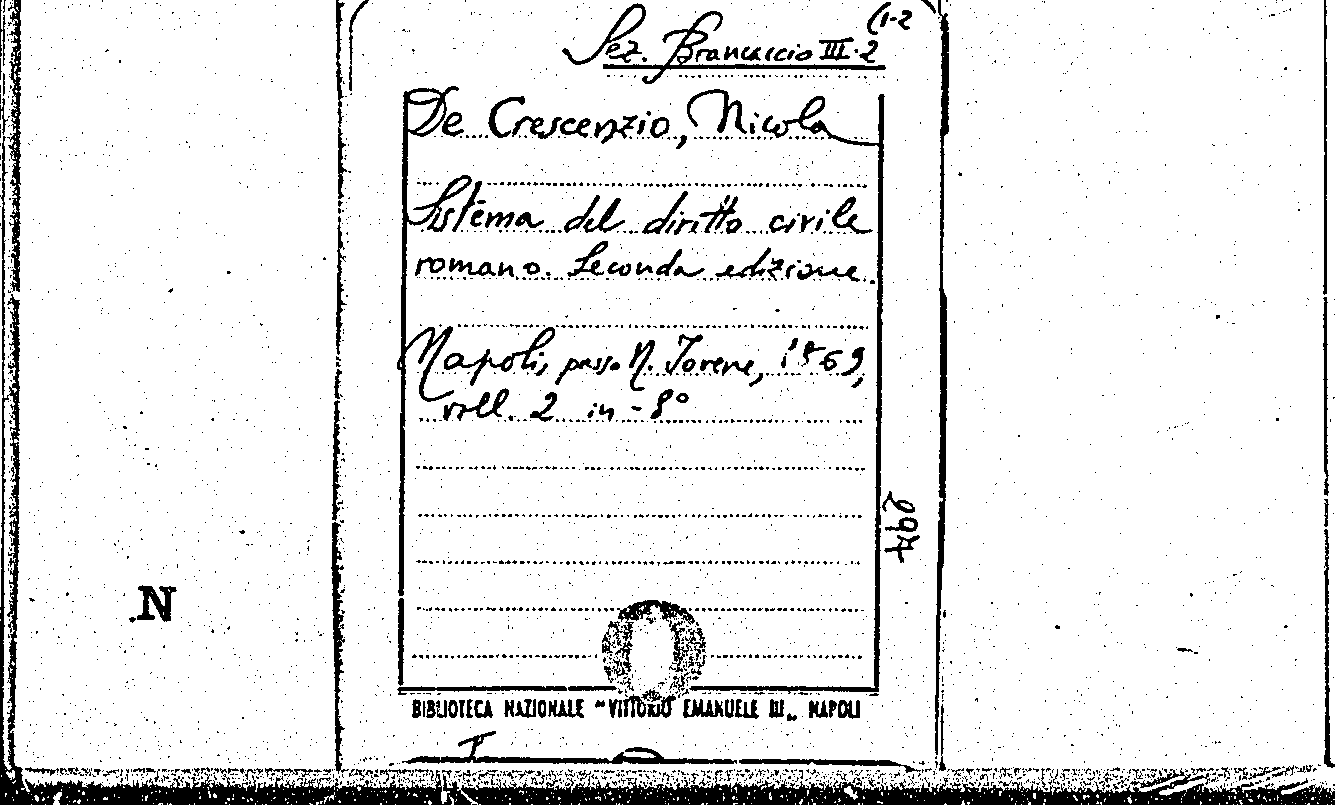 (1-2
Sez. Brancaccio III.2
De Crescenzio, Nicola
Sistema del diritto civile
romano. Seconda edizione.
Napoli, presso N. Jovene, 1869,
voll. 2 in-8°
297
N
BIBLIOTECA NAZIONALE "VITTORIO EMANUELE III„ NAPOLI